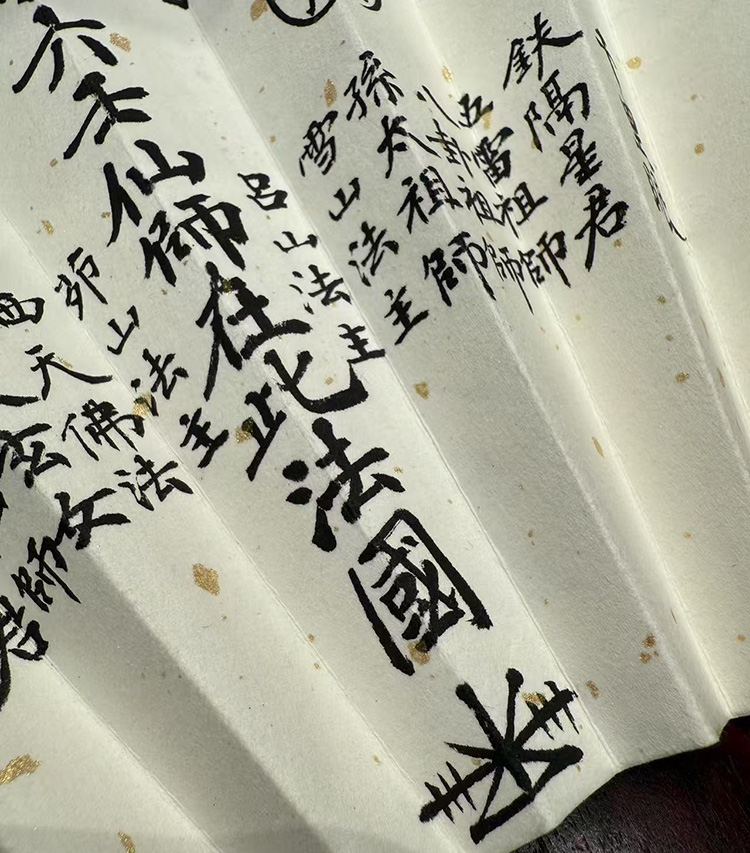 鉄隔星君
五雷祖師
八卦祖師
孫太祖師
雪山法主
呂山法主
六壬仙師在此法國
茆山法主
西天佛法
玄女
師